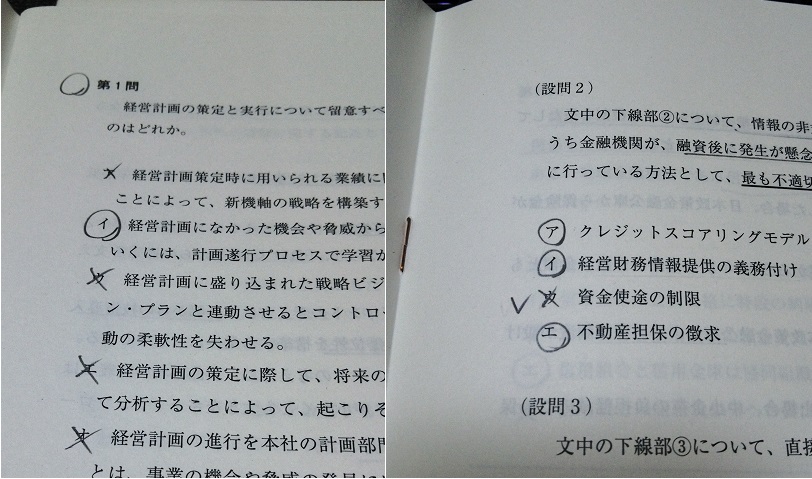 第1問
経営計画の策定と実行について留意すべ
のはどれか。
経営計画策定時に用いられる業績に
ことによって、新機軸の戦略を構築す
イ 経営計画になかった機会や脅威から
いくには、計画遂行プロセスで学習か
ウ 経営計画に盛り込まれた戦略ビジ
ン・プランと連動させるとコントロー
動の柔軟性を失わせる。
エ 経営計画の策定に際して、将来の
て分析することによって、起こりそ
オ 経営計画の進行を本社の計画部門
とは、事業の機会や脅威の発見に
(設問2)
文中の下線部②について、情報の非
うち金融機関が、融資後に発生が懸念
に行っている方法として、最も不適切
ア クレジットスコアリングモデル
イ 経営財務情報提供の義務付け
ウ 資金使途の制限
エ 不動産担保の徴求
(設問3)
文中の下線部③について、直接